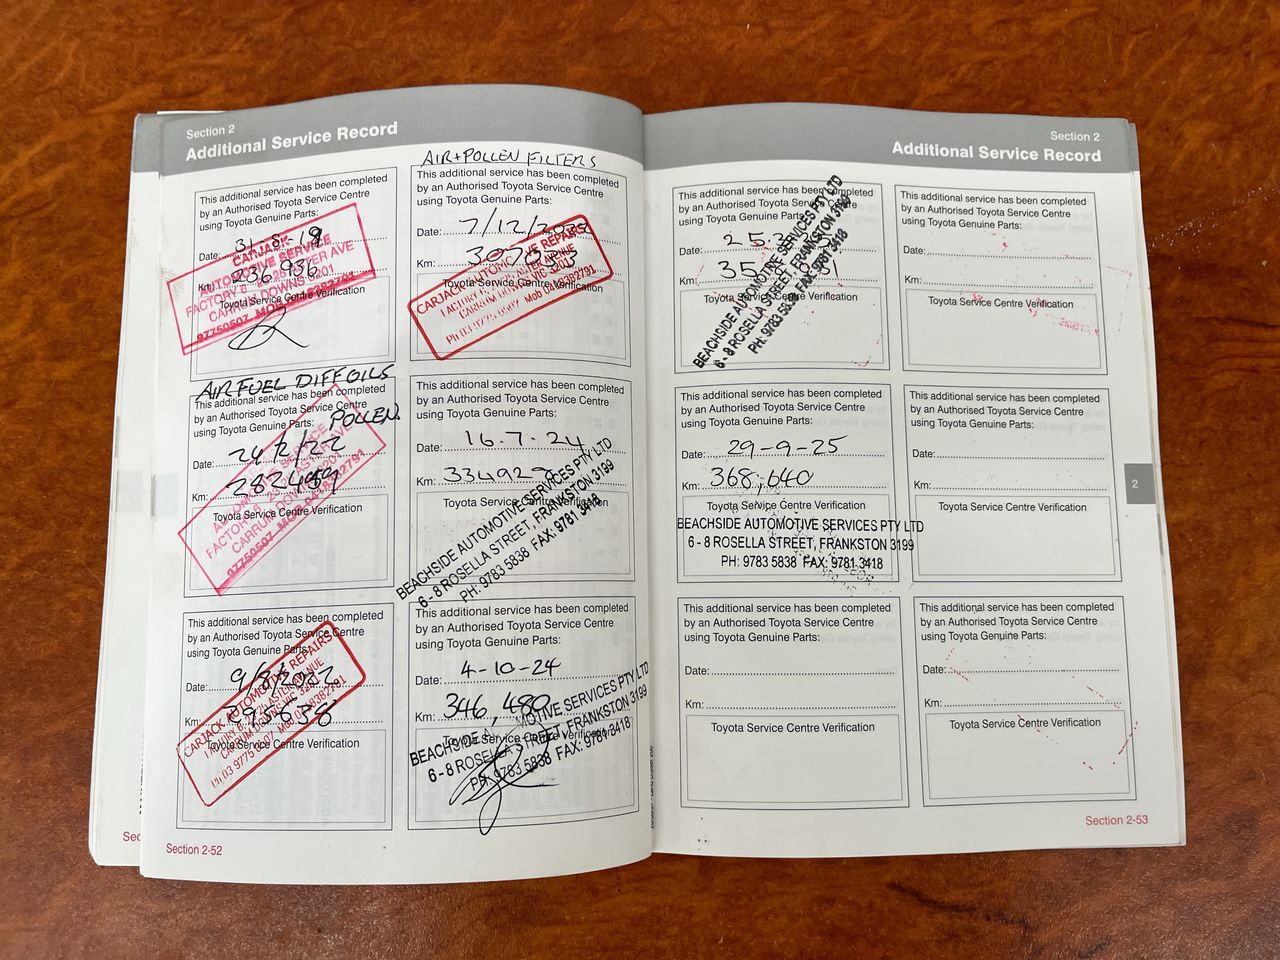 Section 2
Additional Service Record
This additional service has been completed
by an Authorised Toyota Service Centre
using Toyota Genuine Parts:
Date: 31-8-19
Km: 236 936
Toyota Service Centre Verification
CARJACK
AUTOMOTIVE SERVICE
FACTORY 8
AVE
CARRUM DOWNS 3201
97750507 MOB 0418382791
AIR FUEL DIFF OILS
POLLEN
This additional service has been completed
by an Authorised Toyota Service Centre
using Toyota Genuine Parts:
Date: 24/2/22
Km: 282459
Toyota Service Centre Verification
SERVICE
FACTORY 8
CARRUM DOWNS 3201
97750507 MOB 0418382791
This additional service has been completed
by an Authorised Toyota Service Centre
using Toyota Genuine Parts:
Date: 9/8/2022
Km:
Toyota Service Centre Verification
CARJACK AUTOMOTIVE REPAIRS
FACTORY 8, AVENUE
CARRUM DOWNS VIC 3201
Ph 03 9775 0507 Mob 0418382791
Section 2-52
AIR+POLLEN FILTERS
This additional service has been completed
by an Authorised Toyota Service Centre
using Toyota Genuine Parts:
Date: 7/12/
Km:
Toyota Service Centre Verification
CARJACK AUTOMOTIVE REPAIRS
FACTORY 8, AVENUE
CARRUM DOWNS VIC 3201
Ph 03 9775 0507 Mob 0418382791
This additional service has been completed
by an Authorised Toyota Service Centre
using Toyota Genuine Parts:
Date: 16-7-24
Km: 334929
Toyota Service Centre Verification
BEACHSIDE AUTOMOTIVE SERVICES PTY LTD
6 - 8 ROSELLA STREET, FRANKSTON 3199
PH: 9783 5838 FAX: 9781 3418
This additional service has been completed
by an Authorised Toyota Service Centre
using Toyota Genuine Parts:
Date: 4-10-24
Km: 346,480
Toyota Service Centre Verification
BEACHSIDE AUTOMOTIVE SERVICES PTY LTD
6 - 8 ROSELLA STREET, FRANKSTON 3199
PH: 9783 5838 FAX: 9781 3418
Section 2
Additional Service Record
This additional service has been completed
by an Authorised Toyota Service Centre
using Toyota Genuine Parts:
Date:
Km:
Toyota Service Centre Verification
BEACHSIDE AUTOMOTIVE SERVICES PTY LTD
6 - 8 ROSELLA STREET, FRANKSTON 3199
PH: 9783 5838 FAX: 9781 3418
This additional service has been completed
by an Authorised Toyota Service Centre
using Toyota Genuine Parts:
Date: 29-9-25
Km: 368,640
Toyota Service Centre Verification
BEACHSIDE AUTOMOTIVE SERVICES PTY LTD
6 - 8 ROSELLA STREET, FRANKSTON 3199
PH: 9783 5838 FAX: 9781 3418
This additional service has been completed
by an Authorised Toyota Service Centre
using Toyota Genuine Parts:
Date:
Km:
Toyota Service Centre Verification
This additional service has been completed
by an Authorised Toyota Service Centre
using Toyota Genuine Parts:
Date:
Km:
Toyota Service Centre Verification
This additional service has been completed
by an Authorised Toyota Service Centre
using Toyota Genuine Parts:
Date:
Km:
Toyota Service Centre Verification
This additional service has been completed
by an Authorised Toyota Service Centre
using Toyota Genuine Parts:
Date:
Km:
Toyota Service Centre Verification
2
Section 2-53